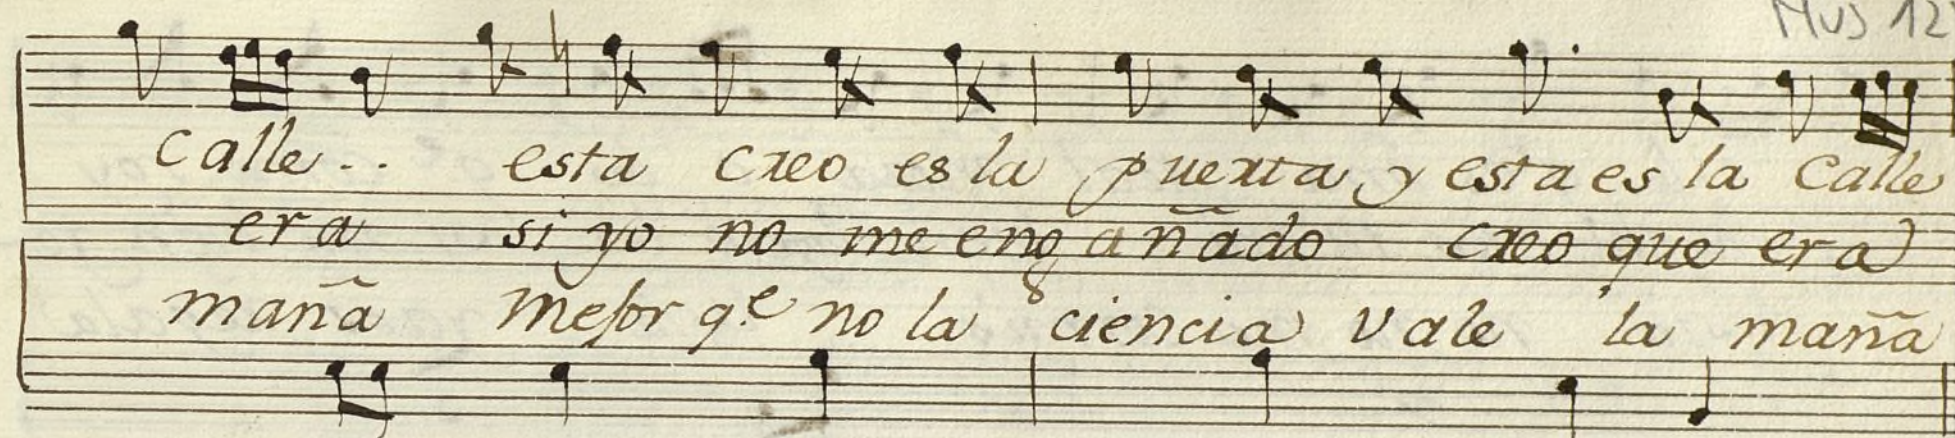 Mus 12
calle.. esta creo es la puerta y esta es la calle
era si yo no me engañado creo que era
maña mejor q.e no la ciencia vale la maña